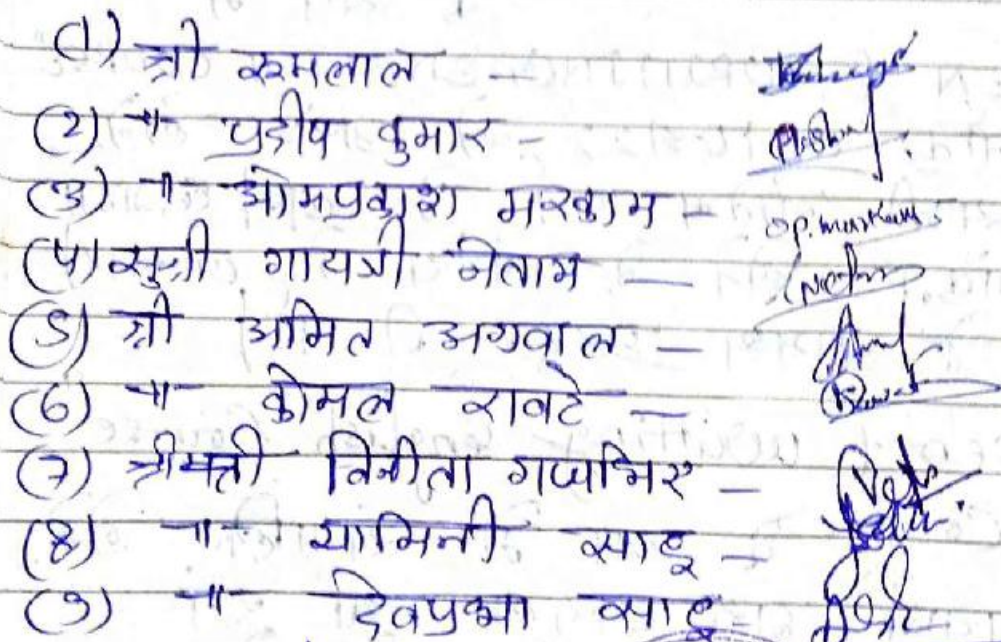 (1) श्री रूमलाल -
(2) -"- प्रदीप कुमार -
(3) -"- ओमप्रकाश मरकाम - O.P. Markam
(4) सुश्री गायत्री नेताम -
(5) श्री अमित अग्रवाल -
(6) -"- कोमल रावटे -
(7) श्रीमती विनीता -
(8) -"- यामिनी साहू -
(9) -"- देवप्रभा साहू